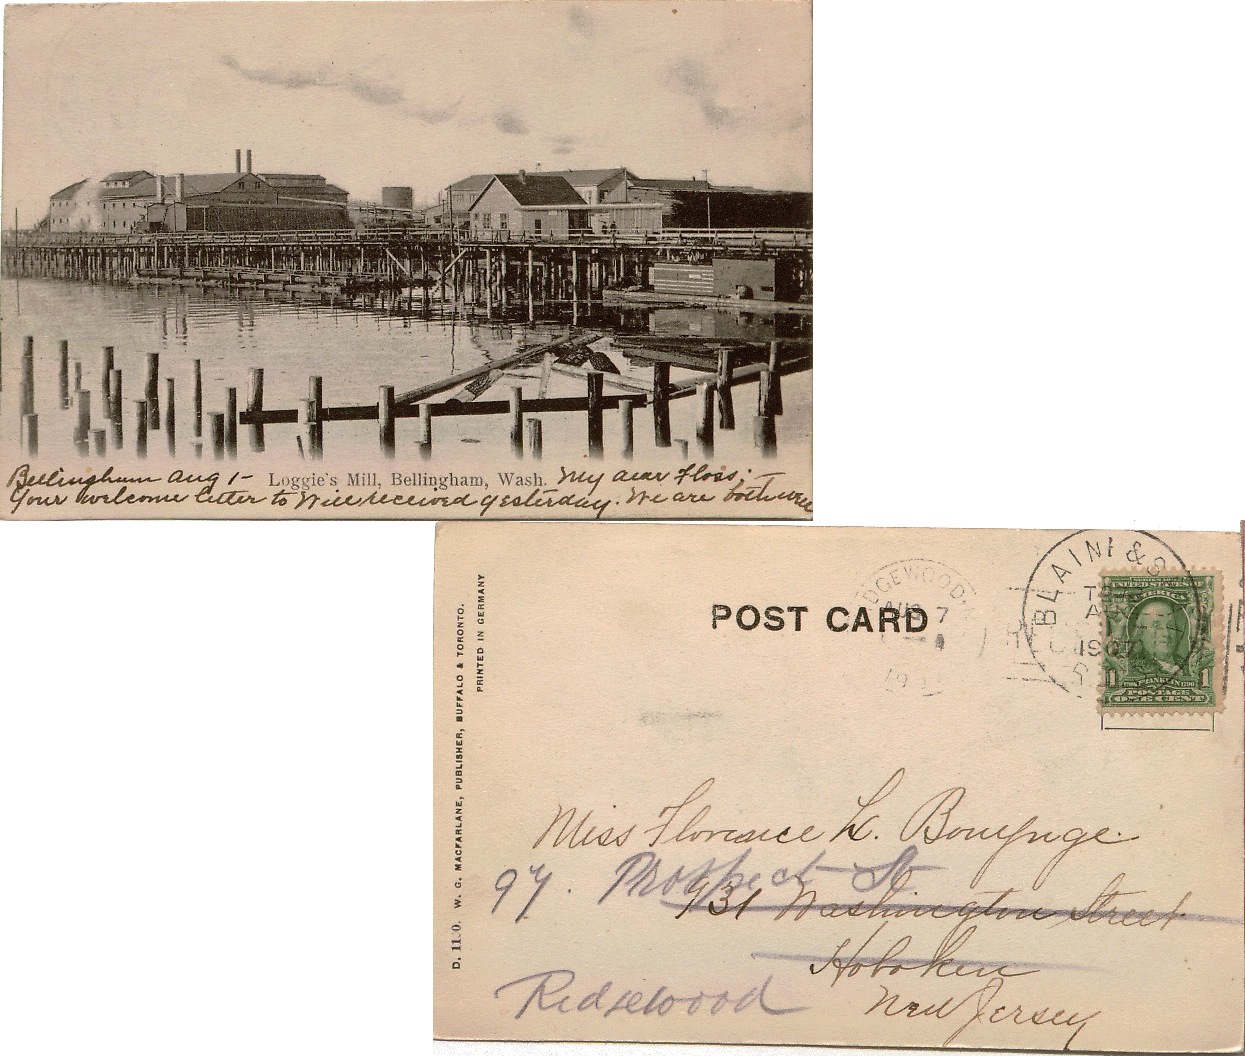 Bellingham Aug 1 - Loggie's Mill, Bellingham, Wash. My dear Floss; -
Your welcome letter to Will received yesterday. We are both well
D. 11 0. W. G. MACFARLANE, PUBLISHER, BUFFALO & TORONTO.
PRINTED IN GERMANY
POST CARD
AUG 7
BLAINE & S
1907
SERIES 1902
UNITED STATES OF
AMERICA
FRANKLIN
1 1
POSTAGE
ONE CENT
Miss Florence L. Bouynge.
97. Prospect St
931 Washington Street
Hoboken
Ridgewood
New Jersey